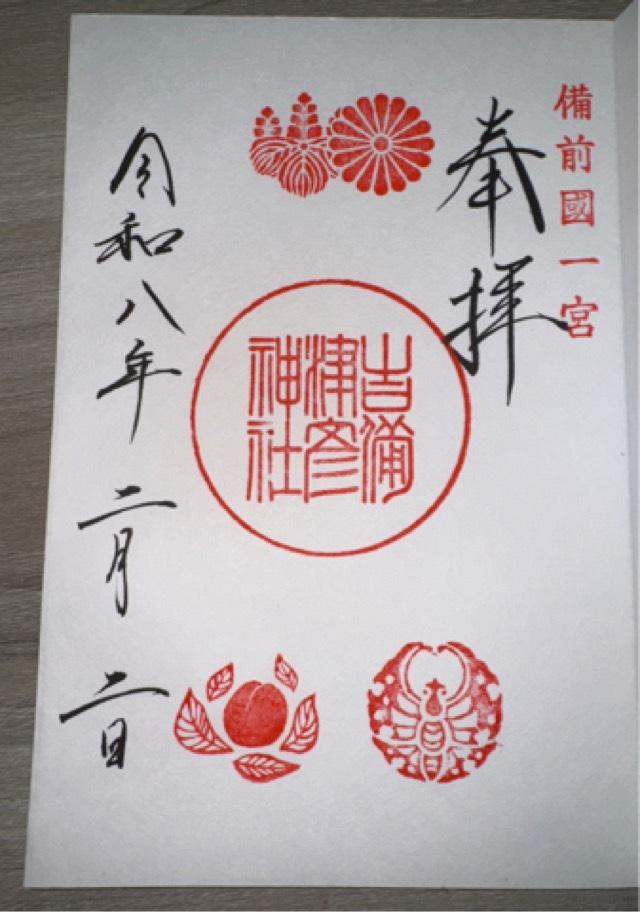 備前國一宮
奉拝
吉備
津彦
神社
令和八年二月二日